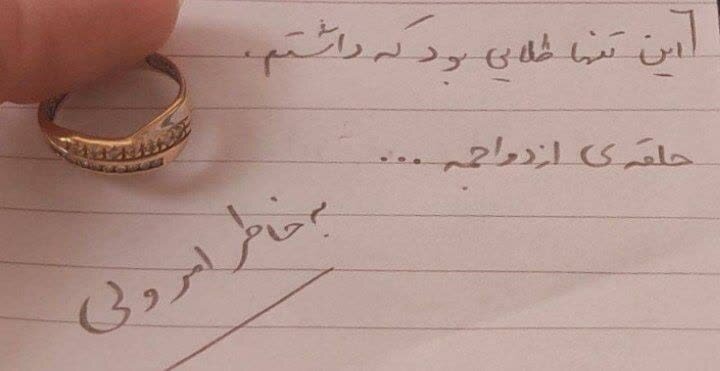 این تنها طلایی بود که داشتم.
حلقه‌ی ازدواجمه ...
به خاطر امر ولی